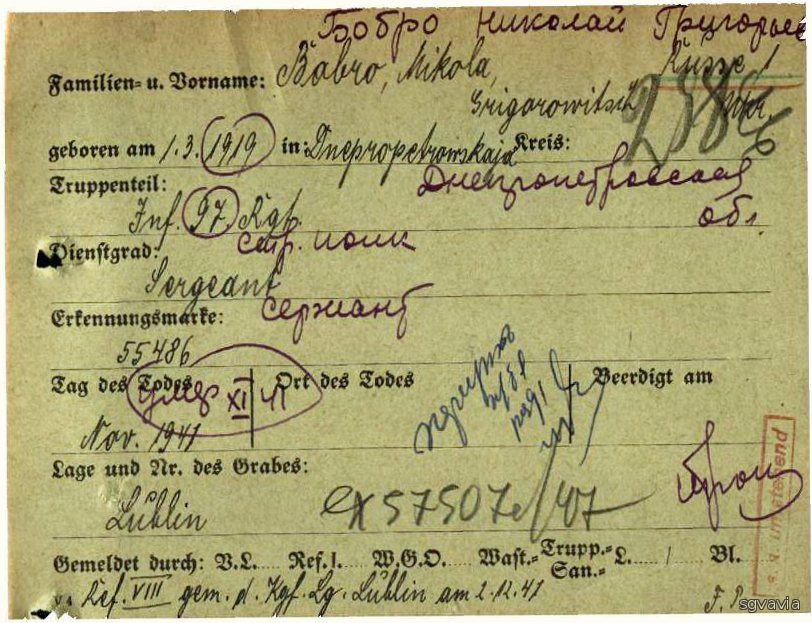 Бобро Николай Григорьев
Familien= u. Vorname: Bobro, Mikola, Russe /
Grigorowitsch Ukr.
geboren am 1.3.1919 in: Dnepropetrowskaja Kreis:
Truppenteil: Днепропетровская
Inf. 97. Rgt. обл.
Dienstgrad: стр. полк
Sergeant
Erkennungsmarke: сержант
55486
Tag des Todes Ort des Todes Beerdigt am
умер XI 41
Nov. 1941
Lage und Nr. des Grabes:
Lublin 57507 /47
Gemeldet durch: V.L. Ref. I. W.G.O. Wast.= Trupp.= San.= L. Bl.
Ref. VIII gem. d. Kgf. Lg. Lublin am 2.12.41
sgvavia